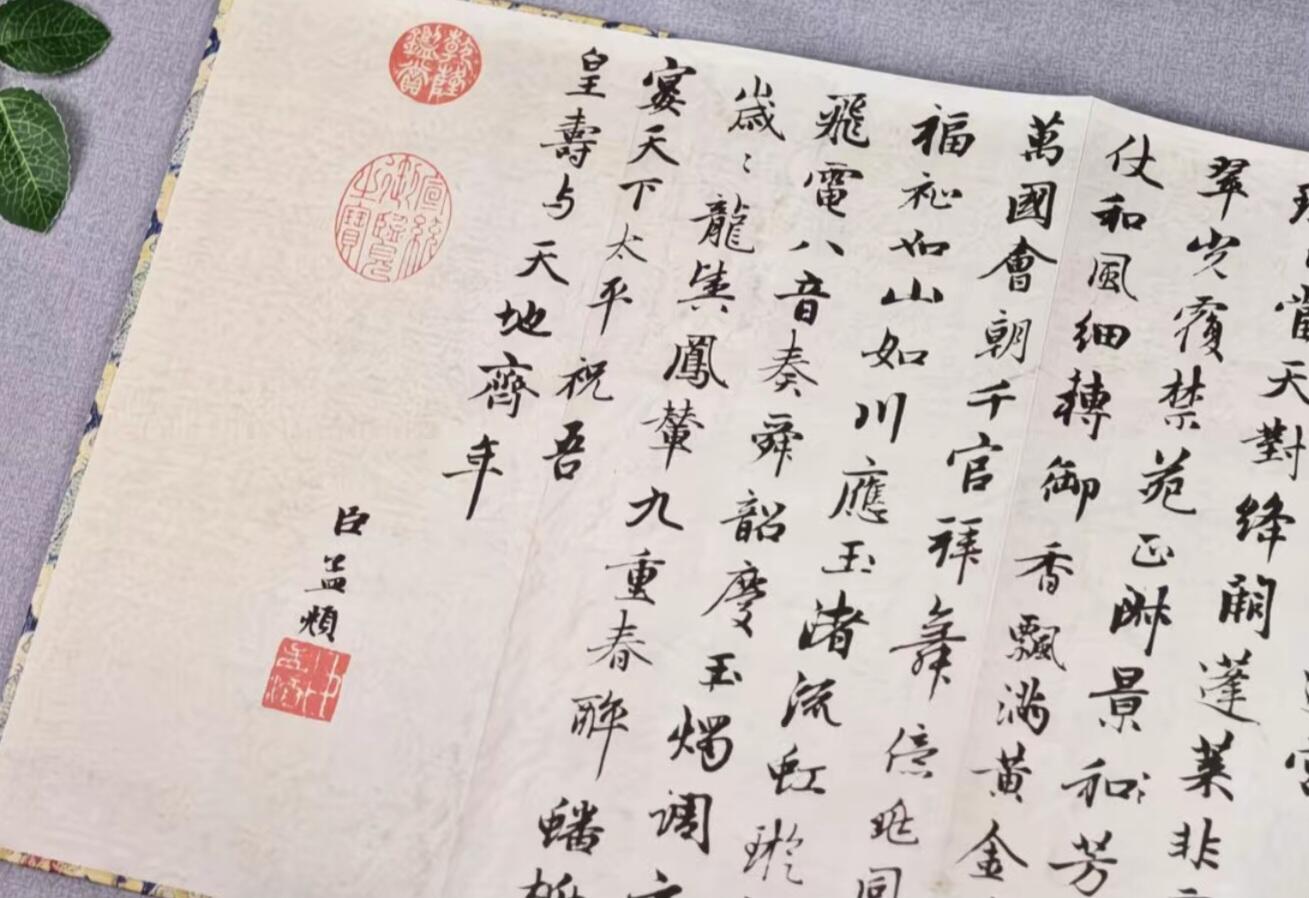 當天對絳闕蓬萊非
翠光覆禁苑正淑景和〻芳
仗和風細轉御香飄滿黃金
萬國會朝千官拜舞億兆同
福祉如山如川應玉渚流虹璇
飛電八音奏舜韶慶玉燭調
歲〻龍輿鳳輦九重春醉蟠桃
宴天下太平祝吾
皇壽与天地齊年
臣孟頫
乾隆鑑賞
宣統御覽之寶